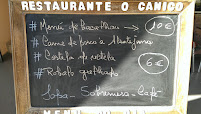 RESTAURANTE O CANIÇO
# Menú de Bacalhau 10€
# Carne de porco à Alentejana
# Costela de vitela
6€
# Robalo grelhado
Sopa - Sobremesa - Café